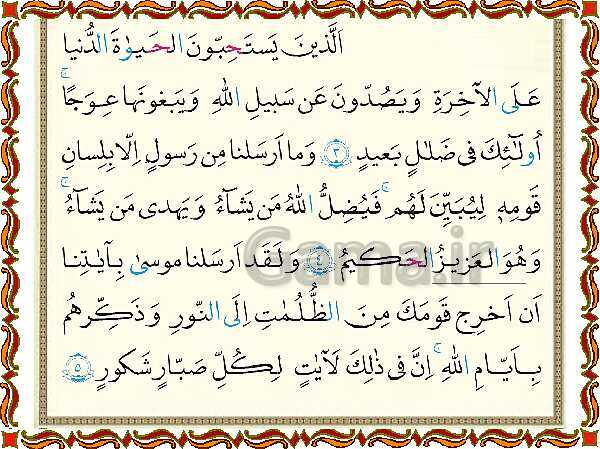 اَلَّذينَ يَستَحِبّونَ الحَيوٰةَ الدُّنيا
عَلَى الآخِرَةِ وَ يَصُدّونَ عَن سَبيلِ اللهِ وَ يَبغونَها عِوَجًا ۚ
اُولٰئِكَ فى ضَلٰلٍ بَعيدٍ ﴿٣﴾ وَ ما اَرسَلنا مِن رَسولٍ اِلّا بِلِسانِ
قَومِهٖ لِيُبَيِّنَ لَهُم ۚ فَيُضِلُّ اللهُ مَن يَشآءُ وَ يَهدى مَن يَشآءُ ۚ
وَ هُوَ العَزيزُ الحَكيمُ ﴿٤﴾ وَ لَقَد اَرسَلنا موسىٰ بِآيٰتِنا
اَن اَخرِج قَومَكَ مِنَ الظُّلُمٰتِ اِلَى النّورِ وَ ذَكِّرهُم
بِاَيّامِ اللهِ ۚ اِنَّ فى ذٰلِكَ لَآيٰتٍ لِكُلِّ صَبّارٍ شَكورٍ ﴿٥﴾
Gama.ir